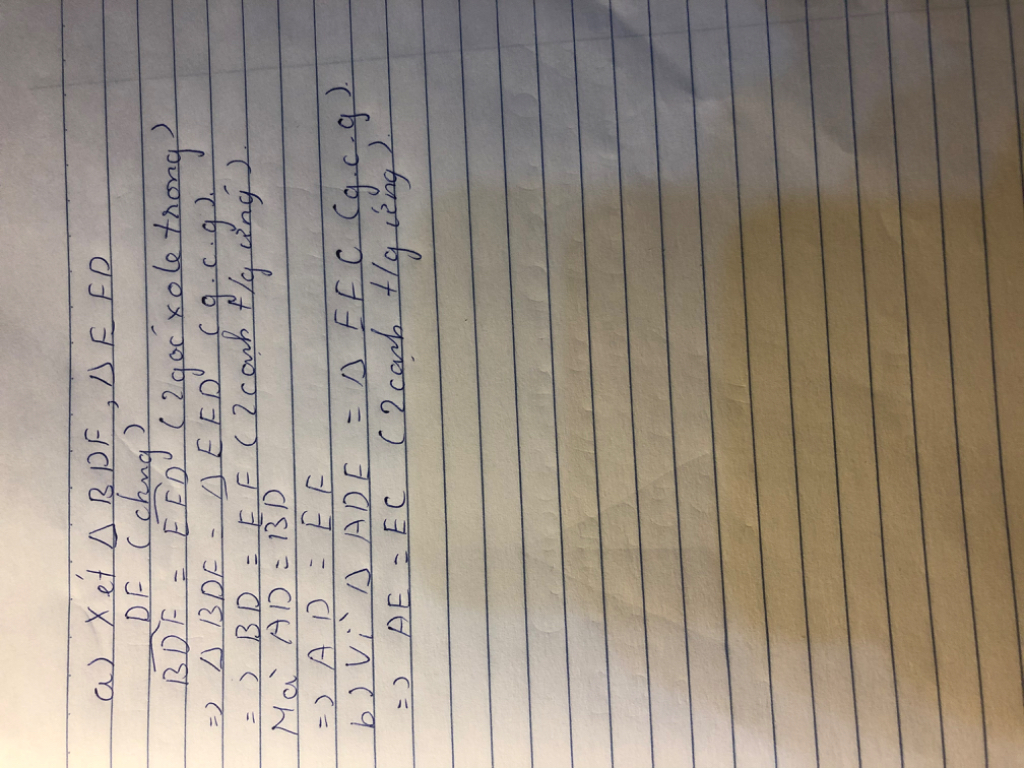 a) Xét Δ BDF, Δ EFD
DF (chung)
BDF = EFD (2 góc xole trong)
=> Δ BDF = Δ EFD (g.c.g).
=> BD = EF (2 cạnh t/g ứng).
Mà AD = BD
=> AD = EF
b) Vì Δ ADE = Δ FEC (g.c.g).
=> AE = EC (2 cạnh t/g ứng)